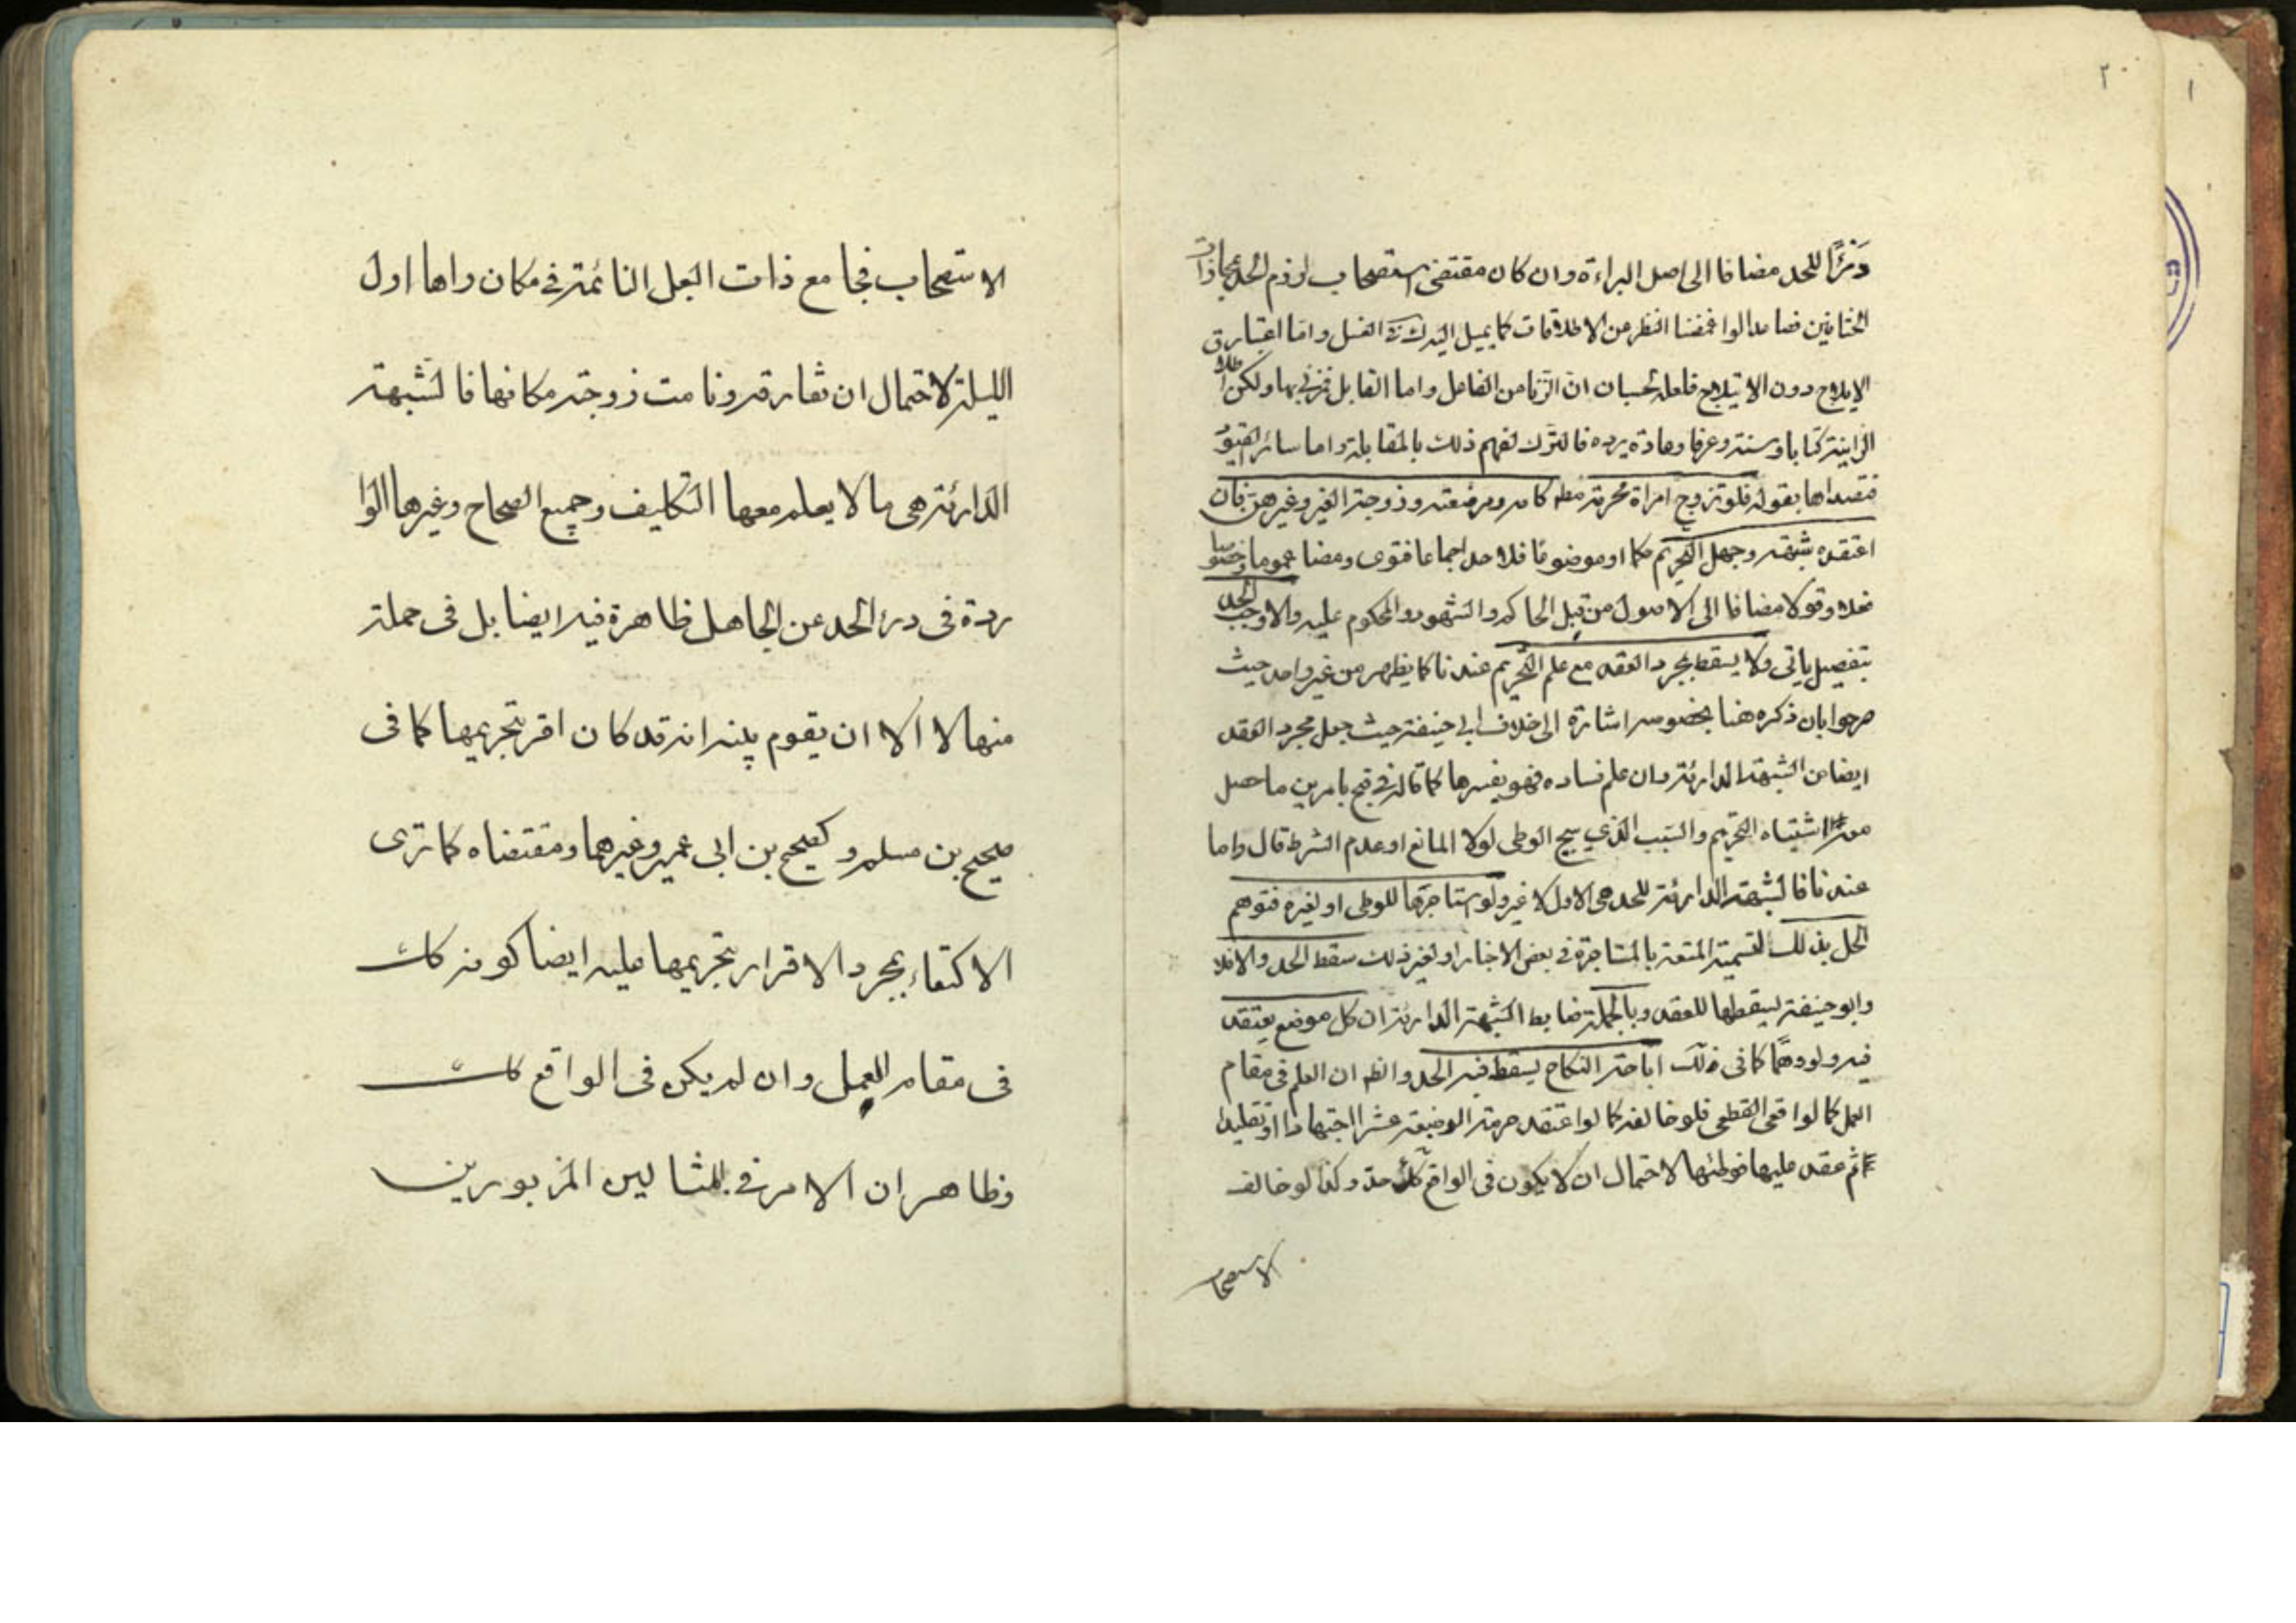 ٢٠
١
درئا للحد مضافا الى اصل البراءة وان كان مقتضى استصحاب لزوم الحد بمحاذات
الختانين فصاعدا لوا غمضنا النظر من الاطلاقات كما يميل اليه رك في الغسل واما اعتبار ق
الايلاج دون الايتلاج فلعله لحسبان ان الزنا من الفاعل واما القابل فمزني بها ولكن اطلاق
الزانية كتابا وسنة وعرفا وعادة يرده فالترك لفهم ذلك بالمقابلة واما سائر القيود
فقصداها بقوله فلو تزوج امراة محرمة مطم كامه ومرضعته وزوجة الغير وغيرهن فان
اعتقده شبهة وجهل التحريم حكما او موضوعا فلا حد اجماعا فتوى ومضا عموما وخصوصا
فعلا وقولا مضافا الى الاصول من قبل الحاكم والشهود والمحكوم عليه والا وجب الحد
بتفصيل ياتى ولا يسقط بمجرد العقد مع علم التحريم عندنا كما يظهر من غير واحد حيث
صرحوا بان ذكره هنا بخصوصه اشارة الى خلاف ابى حنيفة حيث جعل مجرد العقد
ايضا من الشبهة الدارئة وان علم فساده فهو يفسرها كما قاله في قبح بامرين ما حصل
معه اشتباه التحريم والسبب الذي يبيح الوطى لولا المانع او عدم الشرط قال واما
عندنا فالشبهة الدارئة للحد هى الاول لا غير ولو استاجرها للوطى او لغيره فتوهم
الحل بذلك لتسمية المتعة بالمستاجرة في بعض الاخبار او لغير ذلك سقط الحد والا فلا
وابو حنيفة يسقطها للعقد وبالجملة ضابط الشبهة الدارئة ان كل موضع يعتقد
فيه ولو وهما كما فى ذلك اباحة النكاح يسقط فيه الحد والظم ان العلم فى مقام
العمل كالواقعى القطعى فلو خالفه كما لو اعتقد حرمة الرضيعة عشرا اجتهادا او تقليدا
ثم عقد عليها فوطئها لاحتمال ان لا يكون فى الواقع كك حد وكذا لو خالف
الاستصحا
الاستصحاب فجامع ذات البعل النائمة في مكان راها اول
الليلة لاحتمال ان تفارقه ونامت زوجته مكانها فالشبهة
الدارئة هى ما لا يعلم معها التكليف وجميع الصحاح وغيرها الوا
ردة فى درء الحد عن الجاهل ظاهرة فيه ايضا بل فى جملة
منها لا الا ان يقوم بينه انه قد كان اقر بتحريمها كما فى
صحيح بن مسلم وكصحيح بن ابى عمير وغيرهما ومقتضاه كما ترى
الاكتفاء بمجرد الاقرار بتحريمها عليه ايضا كونه كك
فى مقام العمل وان لم يكن فى الواقع كك
وظاهر ان الامر في المثالين المزبورين